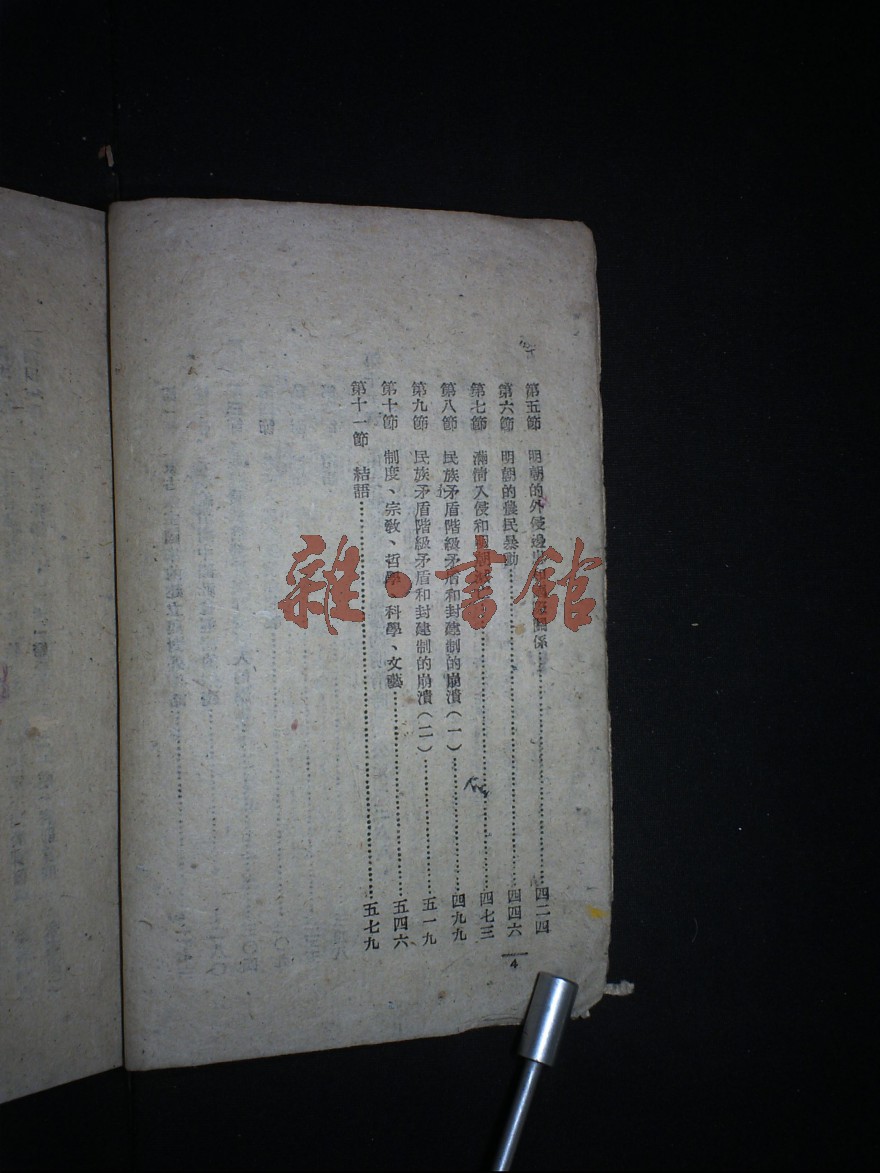 第五節 明朝的外侵邊患和 關係 四二四
第六節 明朝的農民暴動 四四六
第七節 滿清入侵和 四七三
第八節 民族矛盾階級矛盾和封建制的崩潰(一) 四九九
第九節 民族矛盾階級矛盾和封建制的崩潰(二) 五一九
第十節 制度、宗教、哲學、科學、文藝 五四六
第十一節 結語 五七九
4
雜·書館